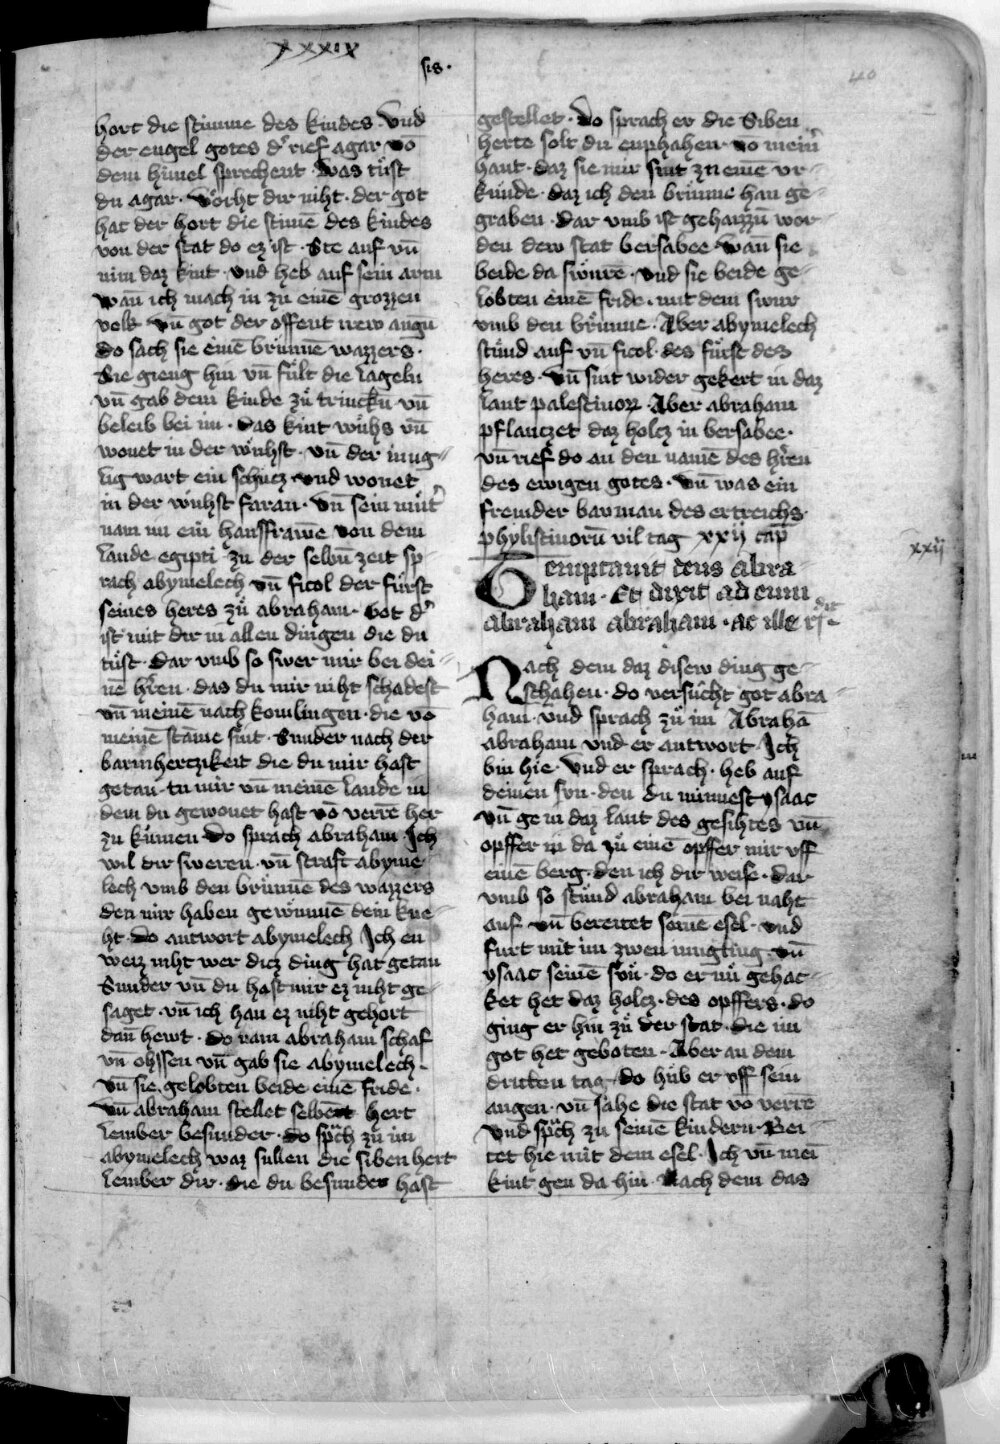 xxxix
sis.
40
hort die stimme des kindes. Vnd
der engel gotes d' rief agar vō
dem himel sprechent. Was tu̇st
du agar. Vorht dir niht. der got
hat der hort die stimē des kindes
von der stat do ez ist. Ste auf vn̄
nim daz kint. vnd heb auf sein arm
wan̄ ich mach in zu einē grozzen
volk. Vn̄ got der offent irew augn̄
do sach sie einē brunnē wazzers.
Sie gieng hin vn̄ fu̇lt die lageln
vn̄ gab dem kinde zu̇ trinckn̄ vn̄
beleib bei im. Das kint wu̇hs vn̄
wonet in der wu̇hst. vn̄ der iung-
lig wart ein schucz. vnd wonet
in der wu̇hst faran. Vn̄ sein mu̇t'
nam im ein hausfrawē von dem
lande egipti. Zu der selbn̄ zeit sp-
rach abymelech vn̄ ficol der fu̇rst
seines heres zu̇ abraham. Got d'
ist mit dir in allen dingen die du
tu̇st. Dar vmb so swer mir bei dei-
nē h'ren. das du mir niht schadest
vn̄ meinē nach komlingen. die vō
meinē stāme sint. Sunder nach der
barmhertzikeit die du mir hast
getan. tu mir vn̄ meinē lande in
dem du gewonet hast vō verrē her
zu ku̇men. Do sprach abraham. Ich
wil dir sweren. vn̄ straft abyme
lech vmb den bru̇nnē des wazzers
den mir haben genu̇mmē dein kne-
ht. do antwort abymelech Ich en
weiz niht wer dicz ding hat getan
Sunder vn̄ du hast mir ez niht ge-
saget. vn̄ ich han ez niht gehort
dan̄ hewt. do nam abraham schaf
vn̄ ohssen vn̄ gab sie abymelech.
Vn̄ sie gelobten beide einē fride.
Vn̄ abraham stellet selbent hert
lember besunder. do sp̈ch zu̇ im
abymelech waz sullen die siben hert
lember dir. die du besunder hast
gestellet. Do sprach er die Siben
herte solt du enphahen. vō mein'
hant. daz sie mir sint zu einē vr-
kunde. daz ich den brunne han ge-
graben. Dar vmb ist gehaizzn̄ wor-
den dew stat bersabee. wan̄ sie
beide da swu̇rē. vnd sie beide ge-
lobten einē fride. mit dem swur
vmb den bru̇nne. Aber abymelech
stu̇nd auf vn̄ ficol. des fu̇rst des
heres. Vn̄ sint wider gekert in daz
lant palestinoꝝ. Aber abraham
pflanczet daz holcz in bersabee.
vn̄ rief do an den namē des h'ren
des ewigen gotes. Vn̄ was ein
fremder bawman des ertreichs.
phylistinorū vil tag xxij cap̄
Temptauit deus abra-
ham. Et dixit ad eum
abraham abraham. ac ille rn̄dit
xxij
Nach dem daz disew ding ge-
schahen. do versu̇cht got abra-
ham. vnd sprach zu̇ im Abrahā
abraham vnd er antwort Ich
bin hie. Vnd er sprach. heb auf
deinen sun. den du minnest ysaac
vn̄ ge in daz lant des gesihtes vn̄
opffer in da zu̇ einē opffer mir vff
einē berg. den ich dir weise. Dar
vmb so stu̇nd abraham bei naht
auf vn̄ bereitet seinē esel. vnd
furt mit im zwen iungling. vn̄
ysaac seinē su̇n. do er nu̇ gehac-
ket het daz holcz. des opffers. do
ging er hin zu̇ der stat. die im
got het geboten. Aber an dem
dritten tag. do hu̇b er vff sein
augen. vn̄ sahe die stat vō verrē
vnd sp̈ch zu seinē kindern. Bei-
tet hie mit dem esel. Ich vn̄ mei
kint gen da hin. Nach dem das